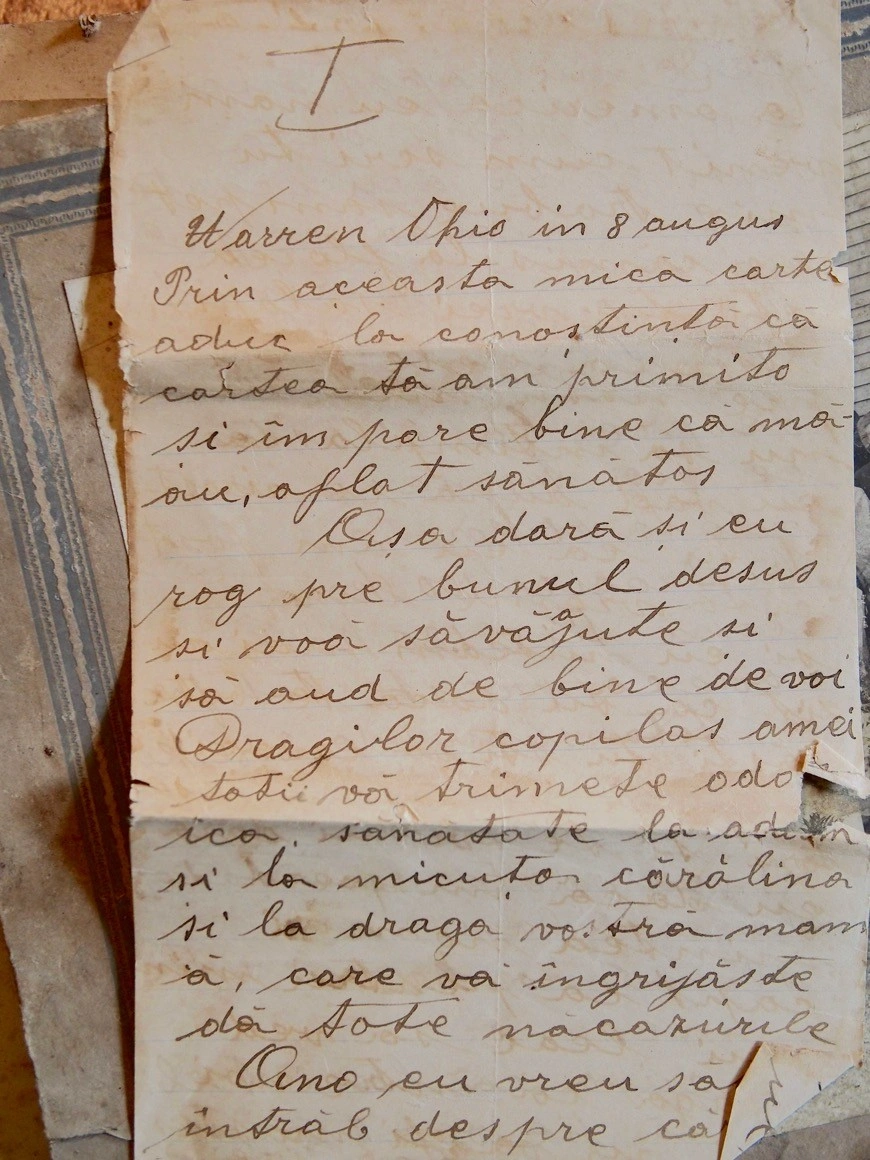 I
Warren Ohio in 8 augus
Prin aceasta mica carte
aduc la conostintă că
cartea tă am primito
si îm pare bine că mă
au, aflat sănătos
Asa dară si eu
rog pre bunul desus
si voă să vă ajute si
să aud de bine de voi
Dragilor copilas amei
totii vă trimete odo
ica, sănătate la adam
si la micuta cărălina
si la draga vostră mam
ă, care vă îngrijăste
dă tote năcazurile
Ano eu vreu să
intrăb despre că